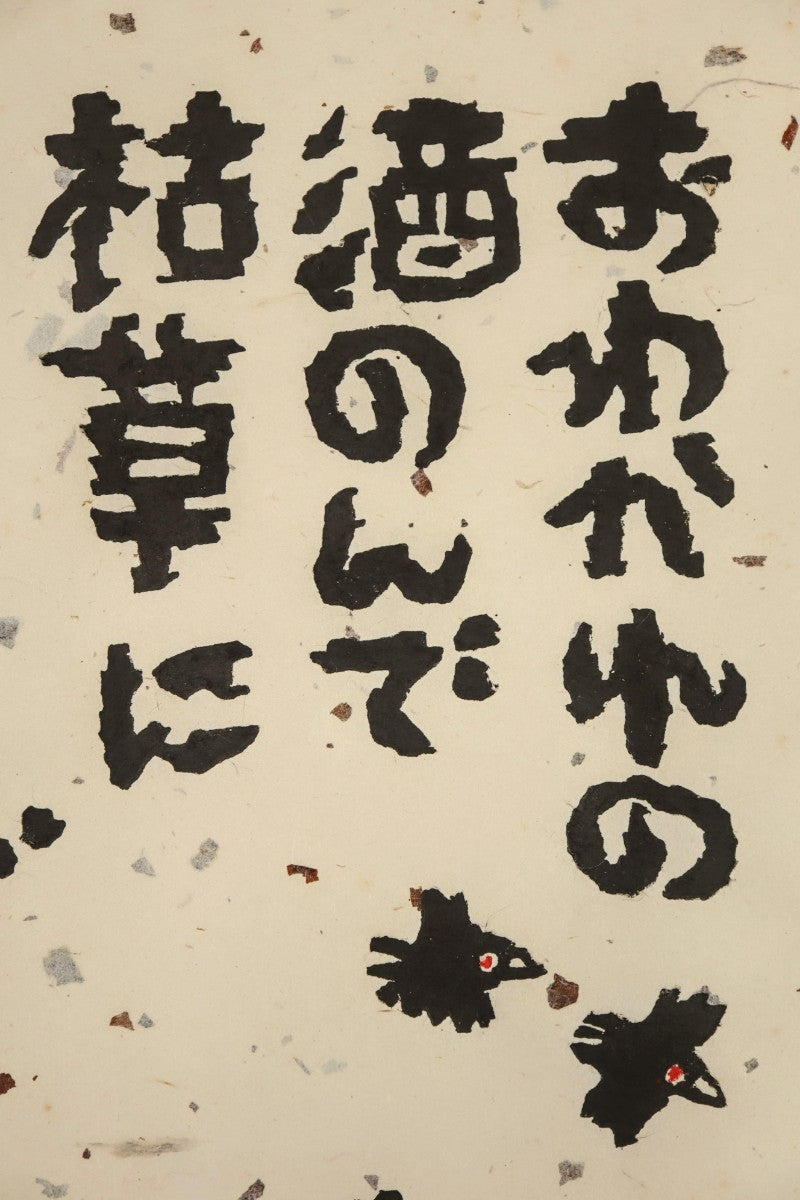 おわかれの
酒のんで
枯草に